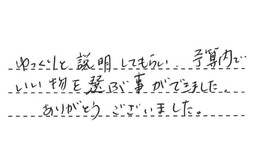 ゆっくりと説明してもらい 予算内で
いい物を選ぶ事ができました。
ありがとうございました。